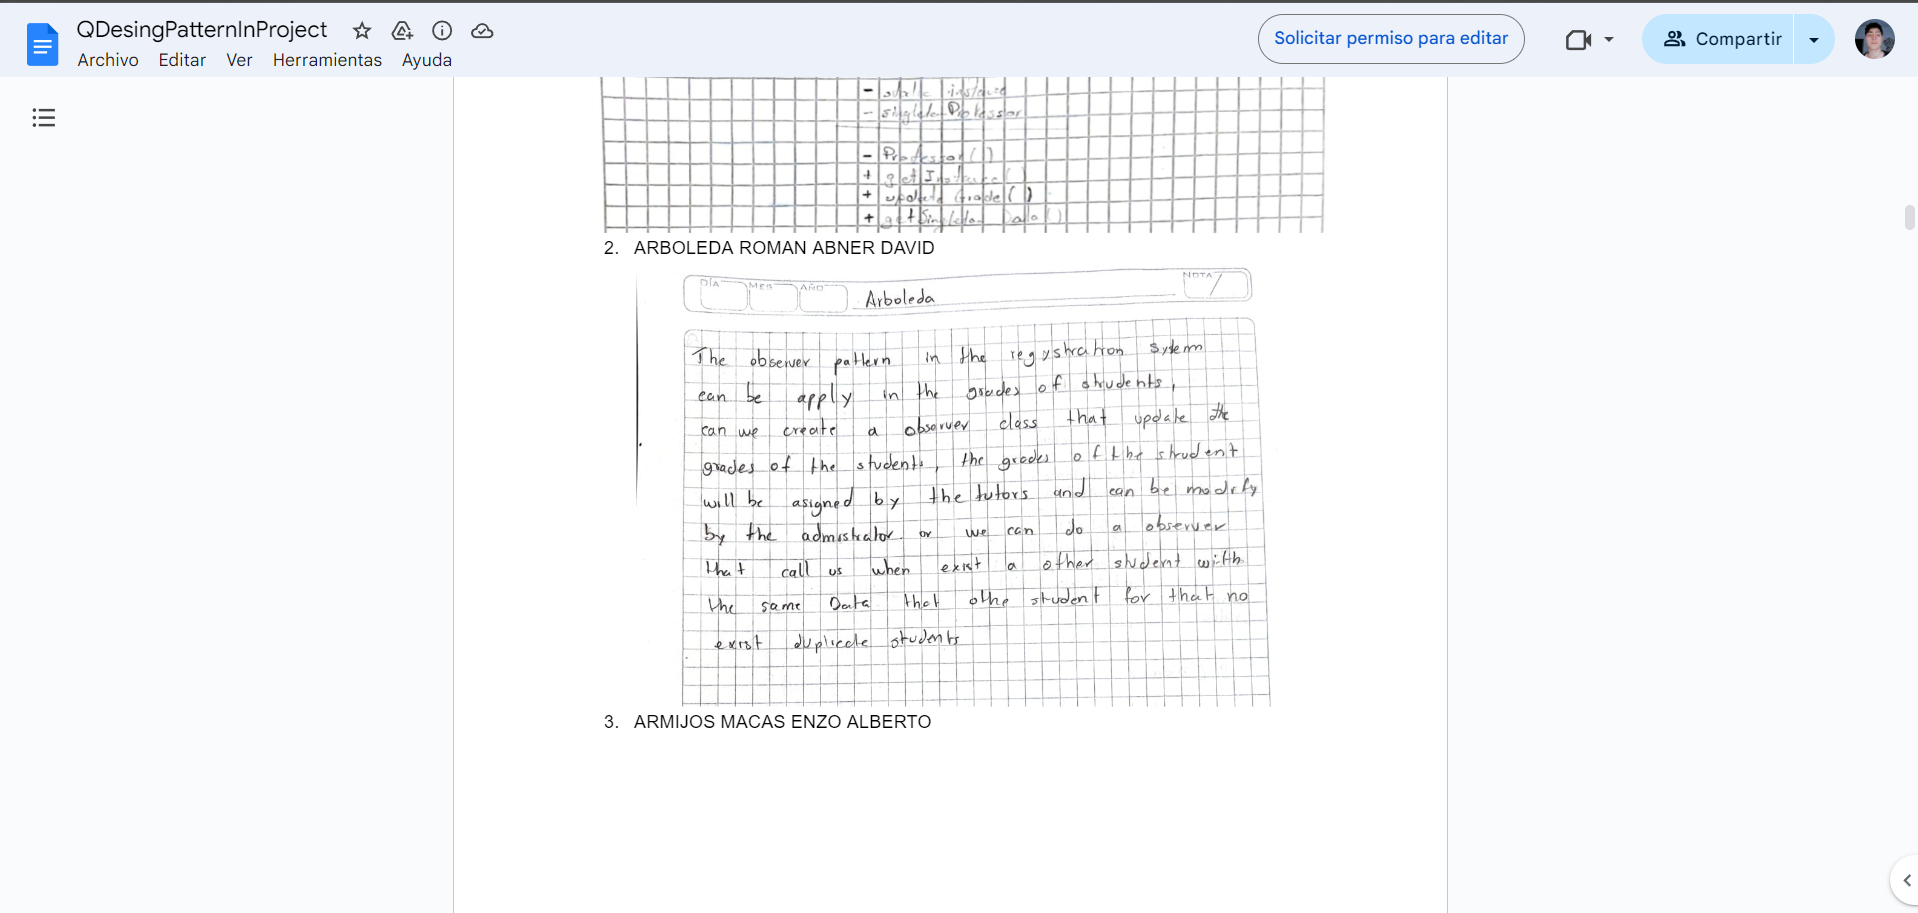 QDesingPatternInProject
Archivo Editar Ver Herramientas Ayuda
Solicitar permiso para editar
Compartir
- static instance
- singleton Professor
- Professor()
+ getInstance()
+ update Grade()
+ getSingleton Data()
2. ARBOLEDA ROMAN ABNER DAVID
DÍA MES AÑO Arboleda NOTA
The observer pattern in the regystration System
can be apply in the grades of students,
can we create a observer class that update the
grades of the students, the grades of the student
will be asigned by the tutors and can be modify
by the admistrator or we can do a observer
that call us when exist a other student with
the same Data that othe student for that no
exist duplicate students
3. ARMIJOS MACAS ENZO ALBERTO